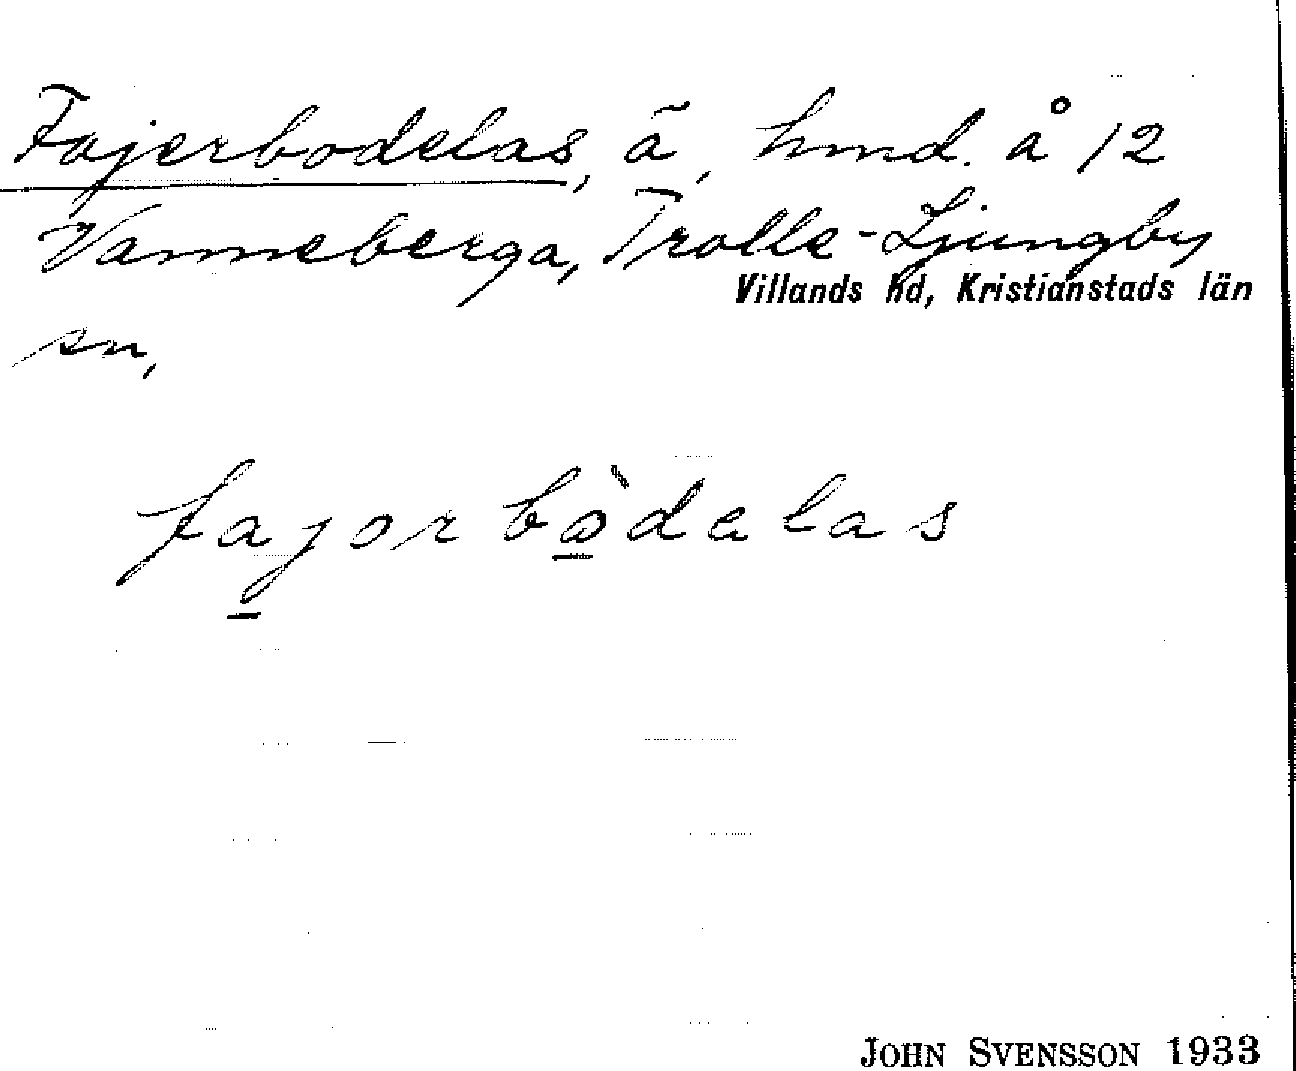 Fajerbodelas, ä, hmd. å 12
Vanneberga, Trolle-Ljungby
Villands hd, Kristianstads län
sn,
fajorbòdalas
JOHN SVENSSON 1933